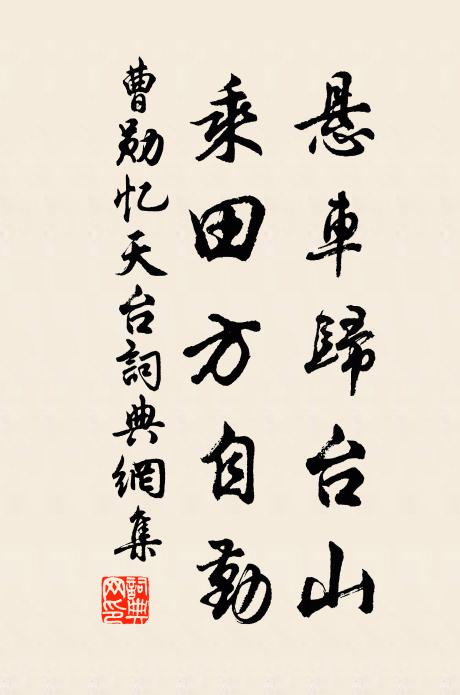 悬車歸台山
乘田方自勤
曹勛忆天台詞典網集
詞典网印